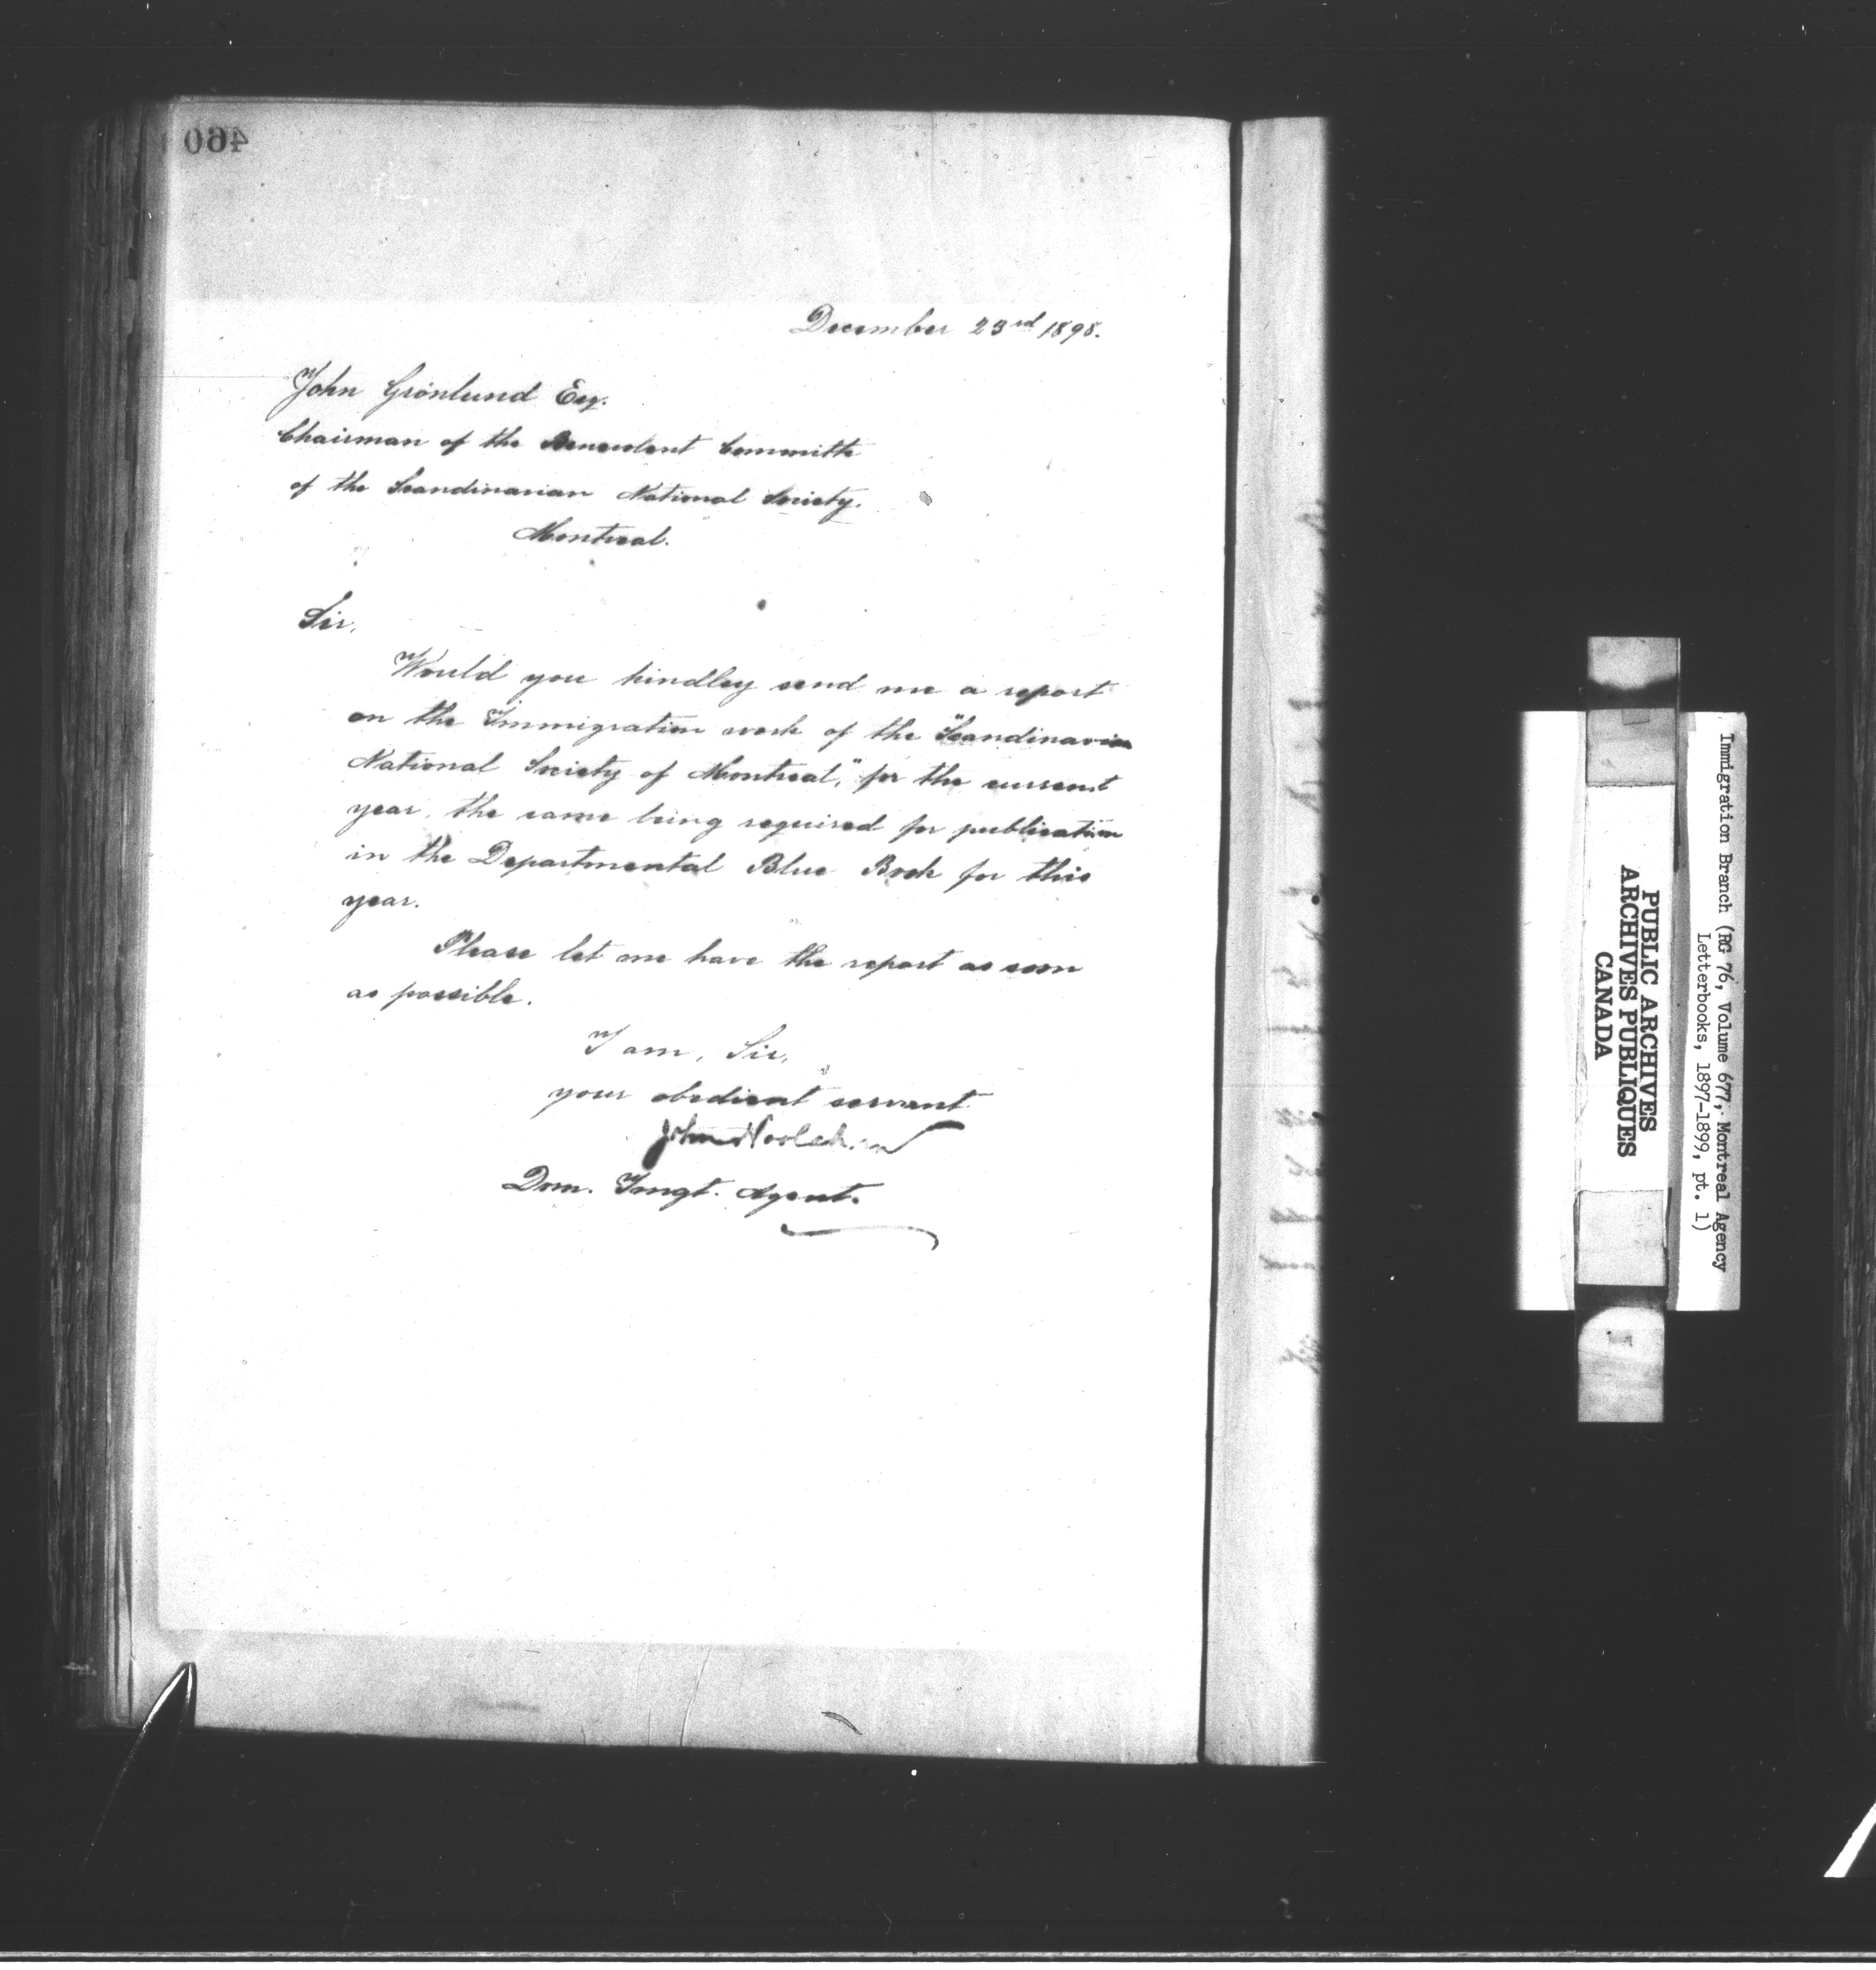 460
December 23rd 1898.
John Grönlund Esq.
Chairman of the Benevolent Committe
of the Scandinavian National Society.
Montreal.
Sir,
Would you kindley send me a report
on the Immigration work of the "Scandinavian
National Society of Montreal," for the current
year, the same being required for publication
in the Departmental Blue Book for this
year.
Please let me have the report as soon
as possible.
I am, Sir,
your obedient servant
John
Dom. Imgt. Agent.
Immigration Branch (RG 76, Volume 677, Montreal Agency
Letterbooks, 1897-1899, pt. 1)
PUBLIC ARCHIVES
ARCHIVES PUBLIQUES
CANADA